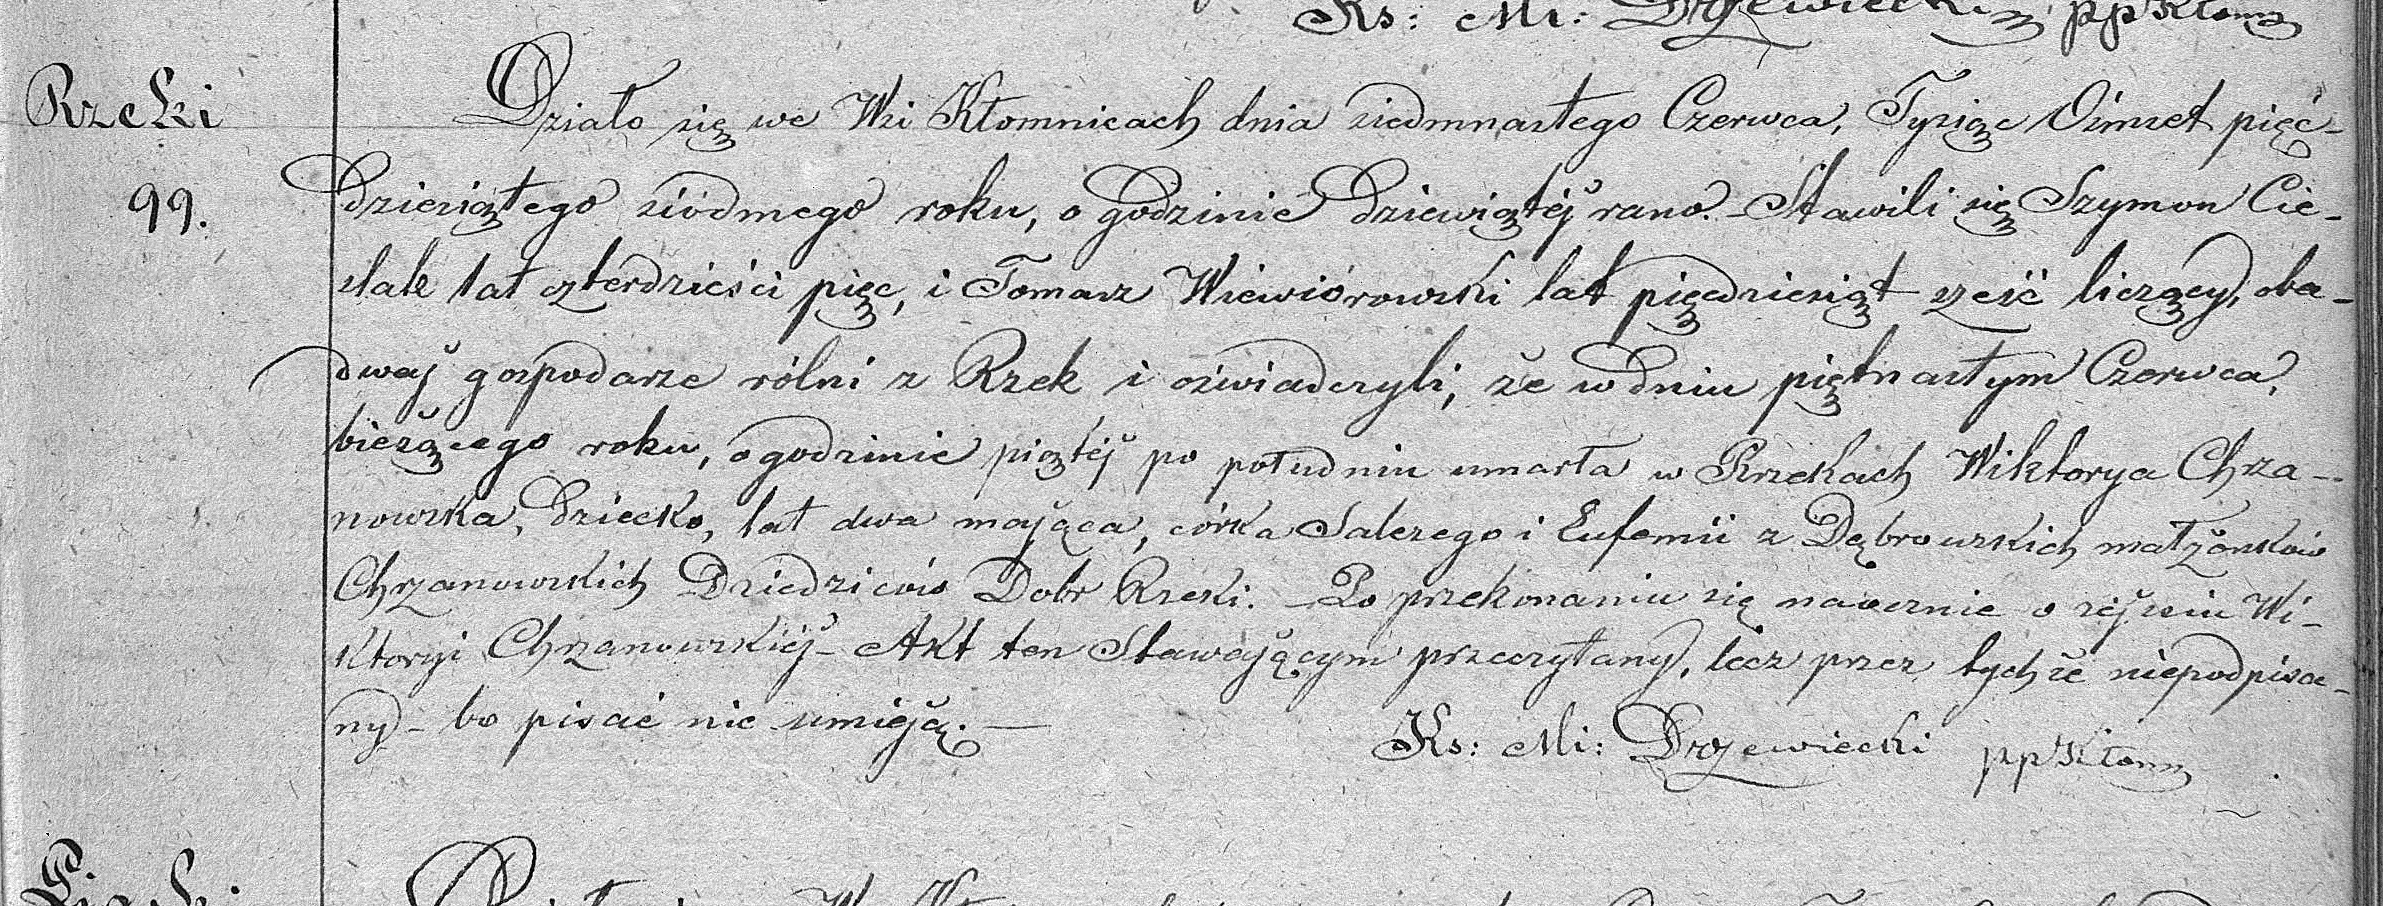 Ks: Mi: Drzewiecki ppKłomn
Rzeki
99.
Działo się we Wsi Kłomnicach dnia siedmnastego Czerwca, Tysiąc Ośmset pięć-
dziesiątego siódmego roku, o godzinie dziewiątéj rano. - Stawili się Szymon Cie-
ślak lat czterdzieści pięc, i Tomasz Wiewiórowski lat pięcdziesiąt sześć liczący, oba-
dwaj gospodarze rólni z Rzek i oświadczyli, że w dniu piętnastym Czerwca,
bieżącego roku, o godzinie piątéj po południu umarła w Rzekach Wiktorya Chrza-
nowska, dziecko, lat dwa mająca, córka Salezego i Eufemii z Dąbrowskich małżonków
Chrzanowskich Dziedziców Dobr Rzeki. - Po przekonaniu się naocznie o zejściu Wi-
ktoryi Chrzanowskiéj - Akt ten Stawającym przeczytany, lecz przez tychże niepodpisa-
ny - bo pisać nie umieją. -
Ks: Mi: Drzewiecki ppKłomn